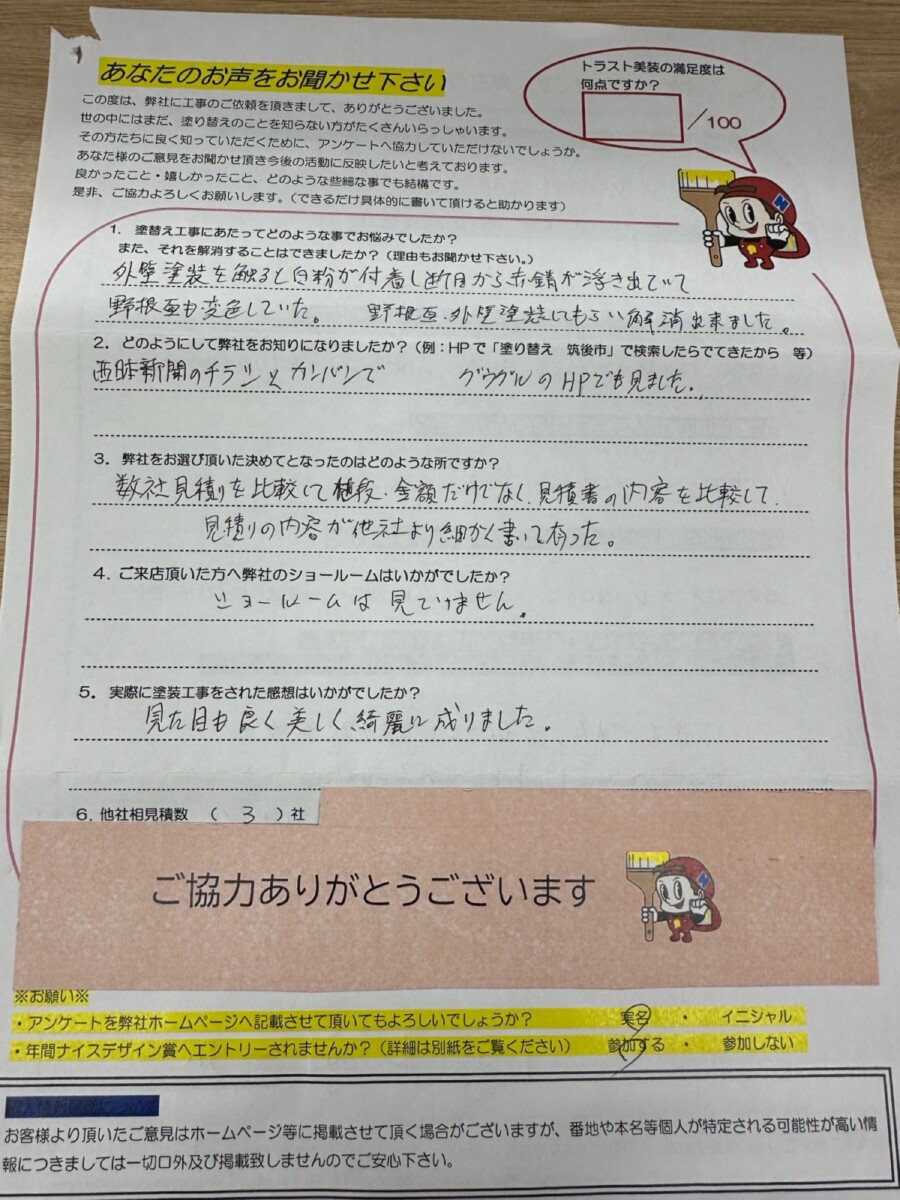 あなたのお声をお聞かせ下さい
トラスト美装の満足度は
何点ですか?
/100
この度は、弊社に工事のご依頼を頂きまして、ありがとうございました。
世の中にはまだ、塗り替えのことを知らない方がたくさんいらっしゃいます。
その方たちに良く知っていただくために、アンケートへ協力していただけないでしょうか。
あなた様のご意見をお聞かせ頂き今後の活動に反映したいと考えております。
良かったこと・嬉しかったこと、どのような些細な事でも結構です。
是非、ご協力よろしくお願いします。(できるだけ具体的に書いて頂けると助かります)
1. 塗替え工事にあたってどのような事でお悩みでしたか?
また、それを解消することはできましたか?(理由もお聞かせ下さい。)
外壁塗装を触ると白粉が付着し断目から赤錆が浮き出ていて
野根面も変色していた。 野根面、外壁塗装してもらい解消出来ました。
2. どのようにして弊社をお知りになりましたか?(例:HPで「塗り替え 筑後市」で検索したらでてきたから 等)
西日本新聞のチラシとカンバンで グウグルのHPでも見ました。
3. 弊社をお選び頂いた決めてとなったのはどのような所ですか?
数社見積りを比較して値段、金額だけでなく、見積書の内容を比較して、
見積りの内容が他社より細かく書いて有った。
4. ご来店頂いた方へ弊社のショールームはいかがでしたか?
ショールームは見ていません。
5. 実際に塗装工事をされた感想はいかがでしたか?
見た目も良く美しく、綺麗に成りました。
6. 他社相見積数 ( 3 )社
ご協力ありがとうございます
※お願い※
・アンケートを弊社ホームページへ記載させて頂いてもよろしいでしょうか? 実名 ・ イニシャル
・年間ナイスデザイン賞へエントリーされませんか?(詳細は別紙をご覧ください) 参加する ・ 参加しない
お客様より頂いたご意見はホームページ等に掲載させて頂く場合がございますが、番地や本名等個人が特定される可能性が高い情
報につきましては一切口外及び掲載致しませんのでご安心下さい。